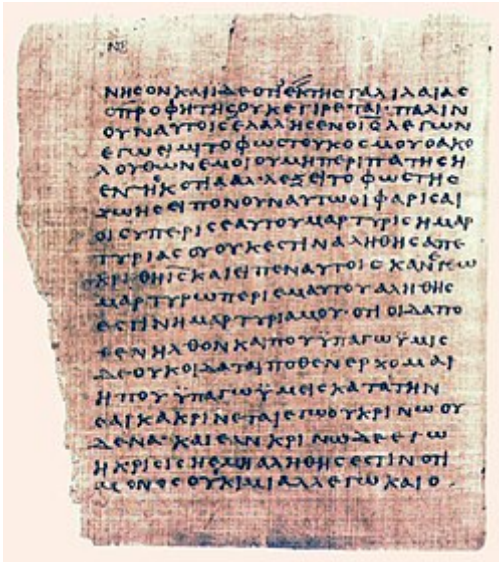 ΝΒ
ΝΗϹΟΝ ΚΑΙ ΙΔΕ ΟΤΙ ΕΚ ΤΗϹ ΓΑΛΙΛΑΙΑϹ
Ο ΠΡΟΦΗΤΗϹ ΟΥΚ ΕΓΙΡΕΤΑΙ· ΠΑΛΙΝ
ΟΥΝ ΑΥΤΟΙϹ ΕΛΑΛΗϹΕΝ Ο ΙϹ ΛΕΓΩΝ
ΕΓΩ ΕΙΜΙ ΤΟ ΦΩϹ ΤΟΥ ΚΟϹΜΟΥ Ο ΑΚΟ
ΛΟΥΘΩΝ ΕΜΟΙ ΟΥ ΜΗ ΠΕΡΙΠΑΤΗϹΗ
ΕΝ ΤΗ ϹΚΟΤΙΑ ΑΛΛ ΕΞΕΙ ΤΟ ΦΩϹ ΤΗϹ
ΖΩΗϹ ΕΙΠΟΝ ΟΥΝ ΑΥΤΩ ΟΙ ΦΑΡΙϹΑΙ
ΟΙ ϹΥ ΠΕΡΙ ϹΕΑΥΤΟΥ ΜΑΡΤΥΡΙϹ Η ΜΑΡ
ΤΥΡΙΑ ϹΟΥ ΟΥΚ ΕϹΤΙΝ ΑΛΗΘΗϹ ΑΠΕ
ΚΡΙΘΗ ΙϹ ΚΑΙ ΕΙΠΕΝ ΑΥΤΟΙϹ ΚΑΝ ΕΓΩ
ΜΑΡΤΥΡΩ ΠΕΡΙ ΕΜΑΥΤΟΥ ΑΛΗΘΗϹ
ΕϹΤΙΝ Η ΜΑΡΤΥΡΙΑ ΜΟΥ· ΟΤΙ ΟΙΔΑ ΠΟ
ΘΕΝ ΗΛΘΟΝ ΚΑΙ ΠΟΥ ΫΠΑΓΩ ΫΜΙϹ
ΔΕ ΟΥΚ ΟΙΔΑΤΑΙ ΠΟΘΕΝ ΕΡΧΟΜΑΙ
Η ΠΟΥ ΫΠΑΓΩ ΫΜΕΙϹ ΚΑΤΑ ΤΗΝ
ϹΑΡΚΑ ΚΡΙΝΕΤΑΙ ΕΓΩ ΟΥ ΚΡΙΝΩ ΟΥ
ΔΕΝΑ· ΚΑΙ ΕΑΝ ΚΡΙΝΩ ΔΕ ΕΓΩ
Η ΚΡΙϹΙϹ Η ΕΜΗ ΑΛΗΘΗϹ ΕϹΤΙΝ ΟΤΙ
ΜΟΝΟϹ ΟΥΚ ΙΜΙ ΑΛΛ ΕΓΩ ΚΑΙ Ο